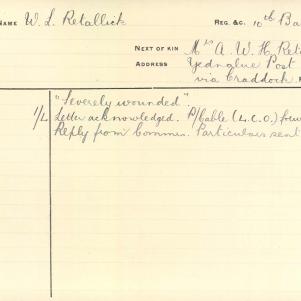 NAME W. L. Retallick REG. &C. 10th Ba
NEXT OF KIN Mrs A. W. H. Ret
ADDRESS Yednalue Post
via Craddock,
"Severely wounded"
1/L Letter acknowledged. P/Cable (L.C.O.)
Reply from Commem. Particulars sent